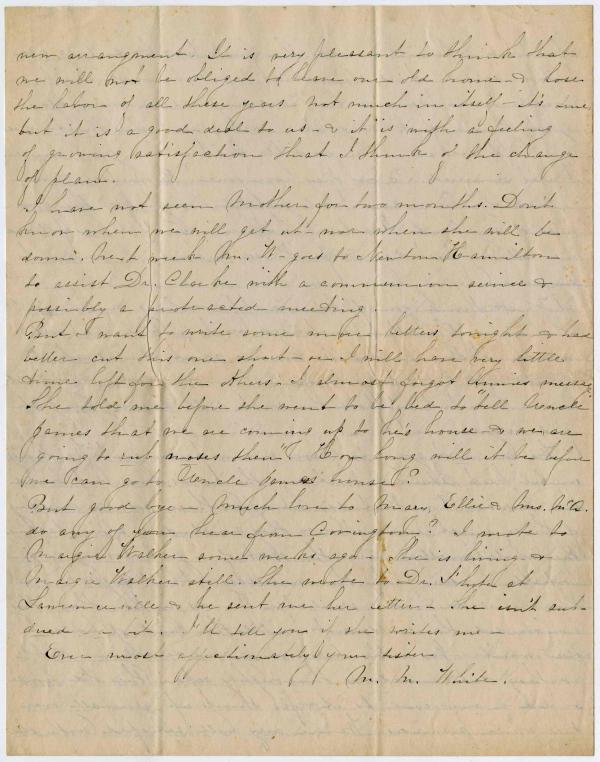 new arrangment. It is very pleasant to think that
we will not be obliged to leave our old home & lose
the labor of all these years - not much in itself - it's true
but it is a good deal to us - & it is with a feeling
of growing satisfaction that I think of the change
of plans.
I have not seen Mother for two months. Don't
know when we will get out - nor when she will be
down. Next week Mr. W - goes to Newton Hamilton
to assist Dr. Clarke with a communion service &
possibly a protracted meeting.
But I want to write some more letters tonight & had
better cut this one short - or I will have very little
time left for the others - I almost forgot Annies message
She told me before she went to be bed to "tell Uncle
James that we are coming up to he's house & we are
going to rub noses then". How long will it be before
we can go to Uncle James house?
But good bye - much love to Mary, Ellie &  Mrs. McB.
do any of you hear from Covington? I wrote to
Margie Walker some weeks ago - She is living &
Margie Walker still. She wrote to Dr. at
Lawrenceville & he sent me her letter - She isn't sub-
dued a bit. I'll tell you if she writes me -
Ever most affectionately your sister
M. M. White.